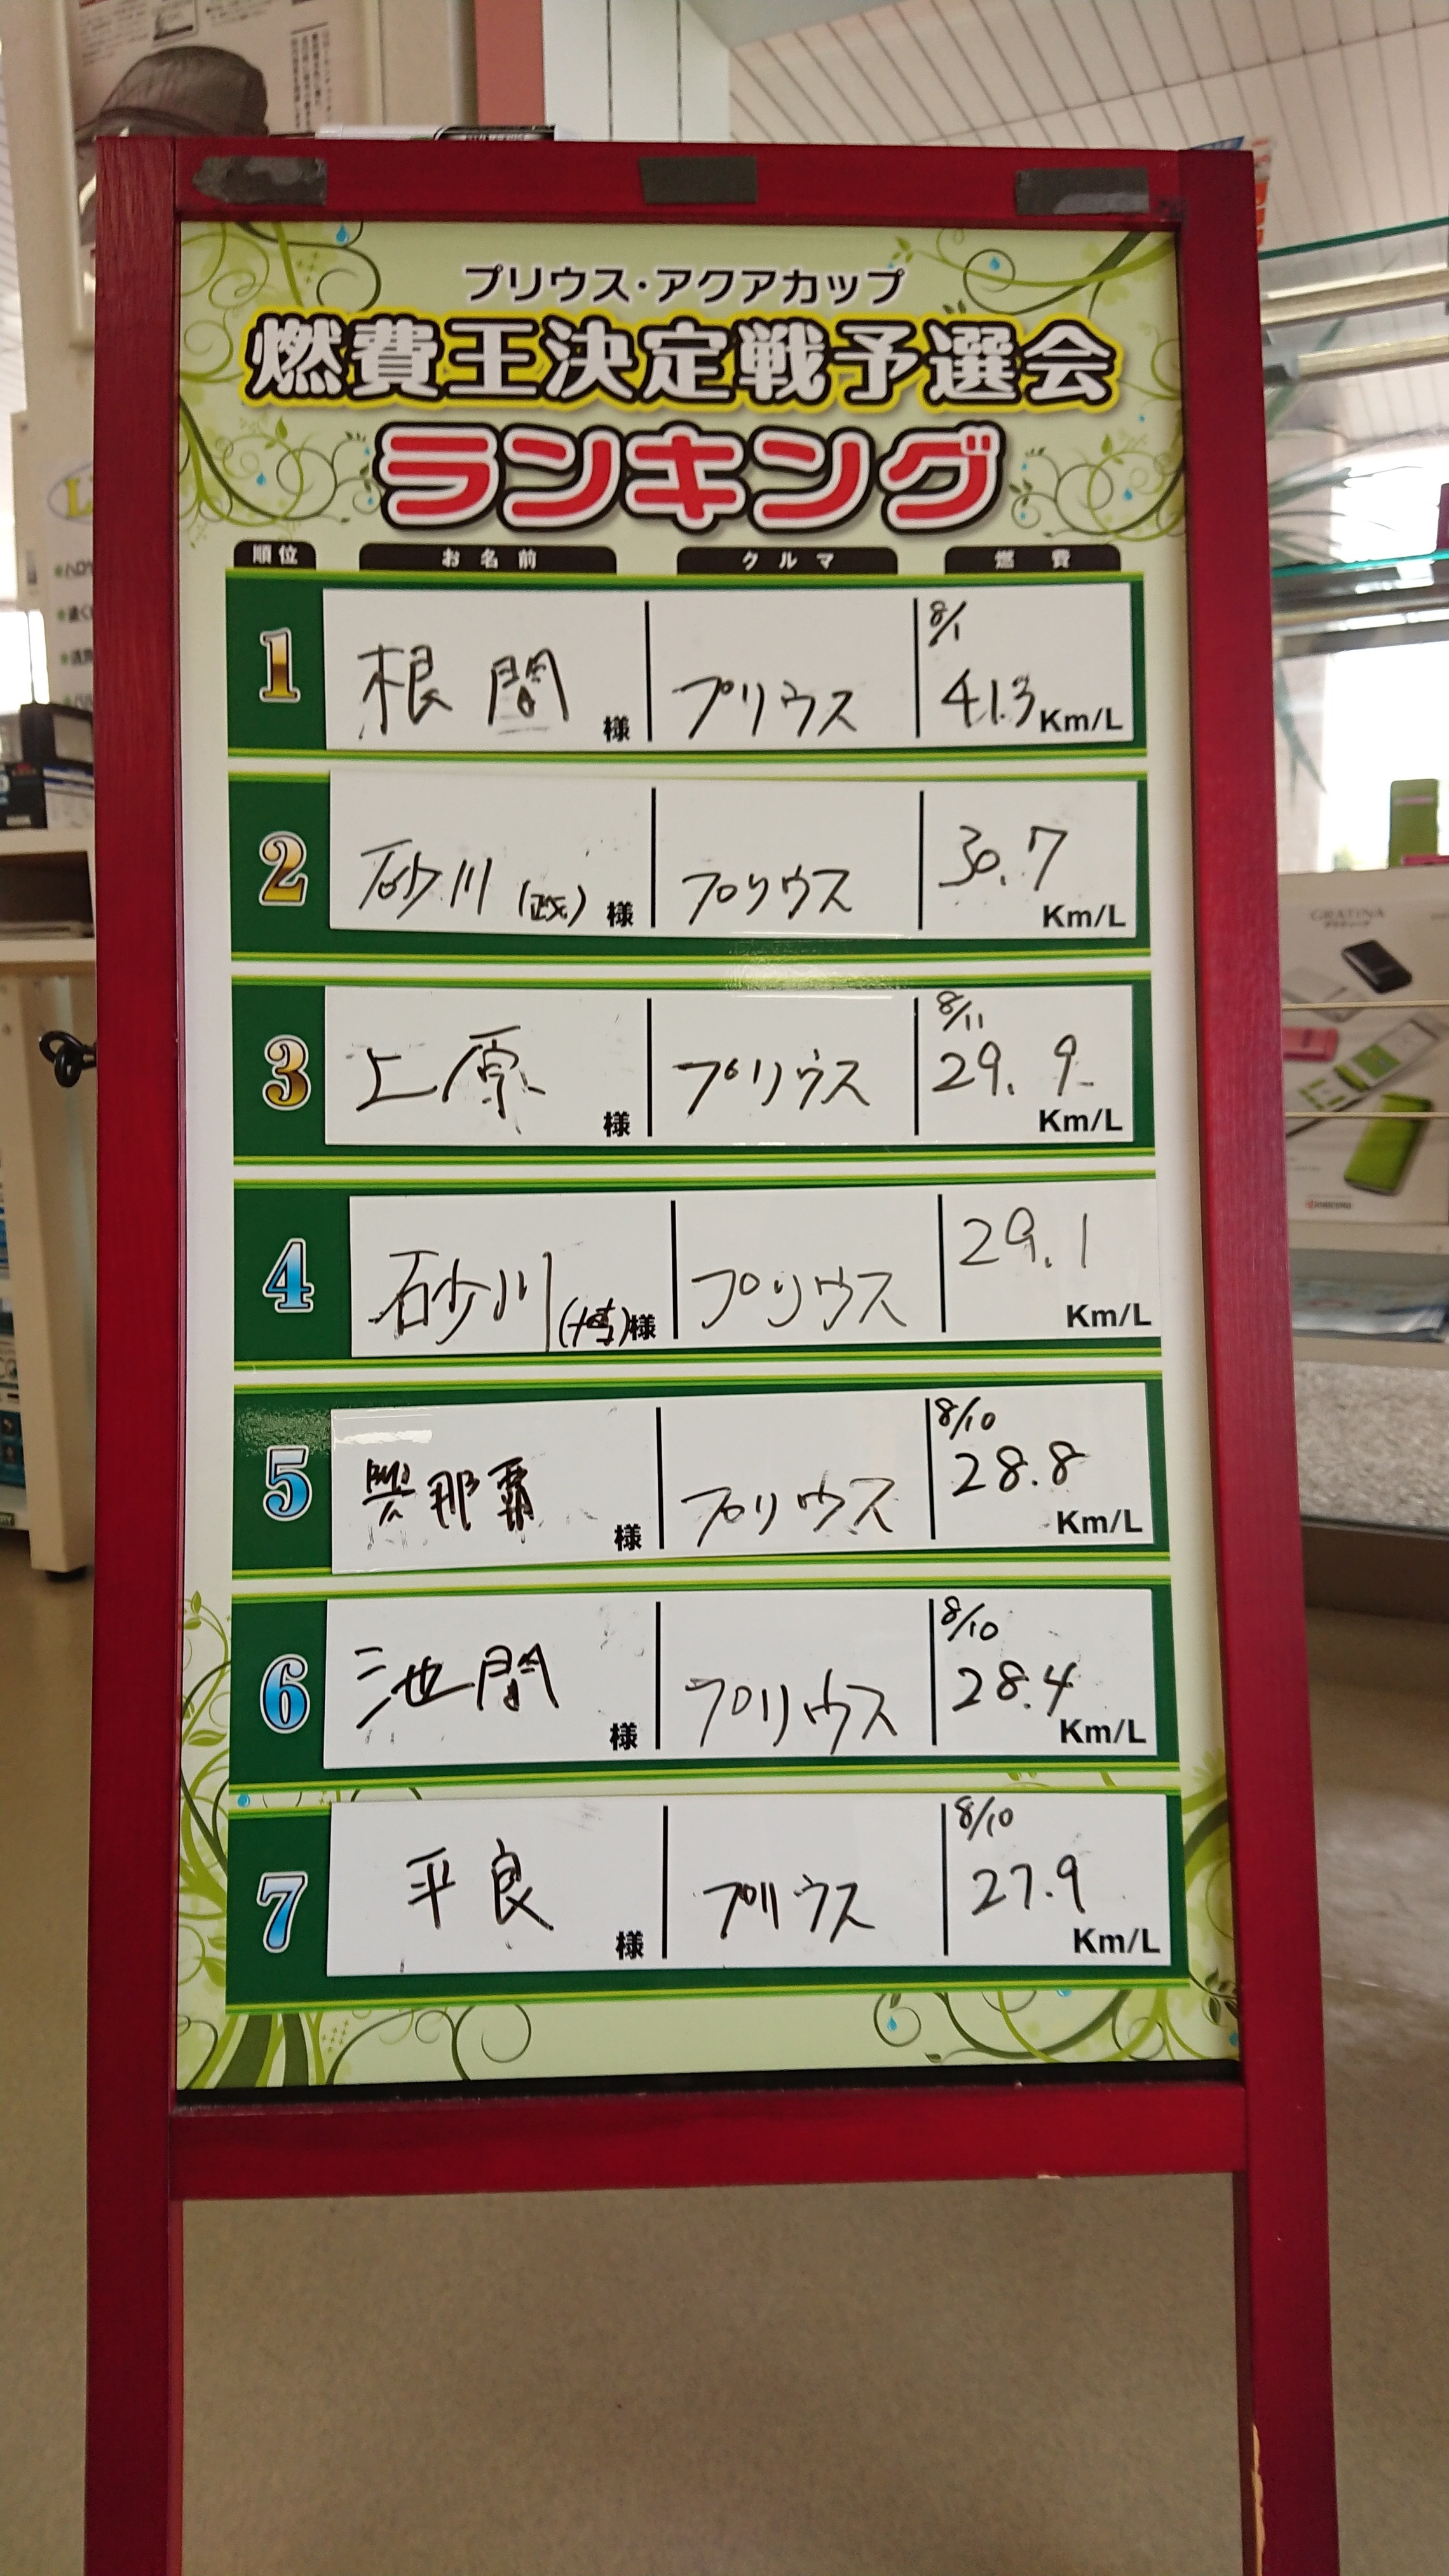 プリウス・アクアカップ
燃費王決定戦予選会
ランキング
順位 お名前 クルマ 燃費
1 根間 様 プリウス 8/1 41.3 Km/L
2 砂川 (政) 様 プリウス 30.7 Km/L
3 上原 様 プリウス 8/11 29.9 Km/L
4 砂川 (博) 様 プリウス 29.1 Km/L
5 與那覇 様 プリウス 8/10 28.8 Km/L
6 池間 様 プリウス 8/10 28.4 Km/L
7 平良 様 プリウス 8/10 27.9 Km/L
GRATINA
KYOCERA